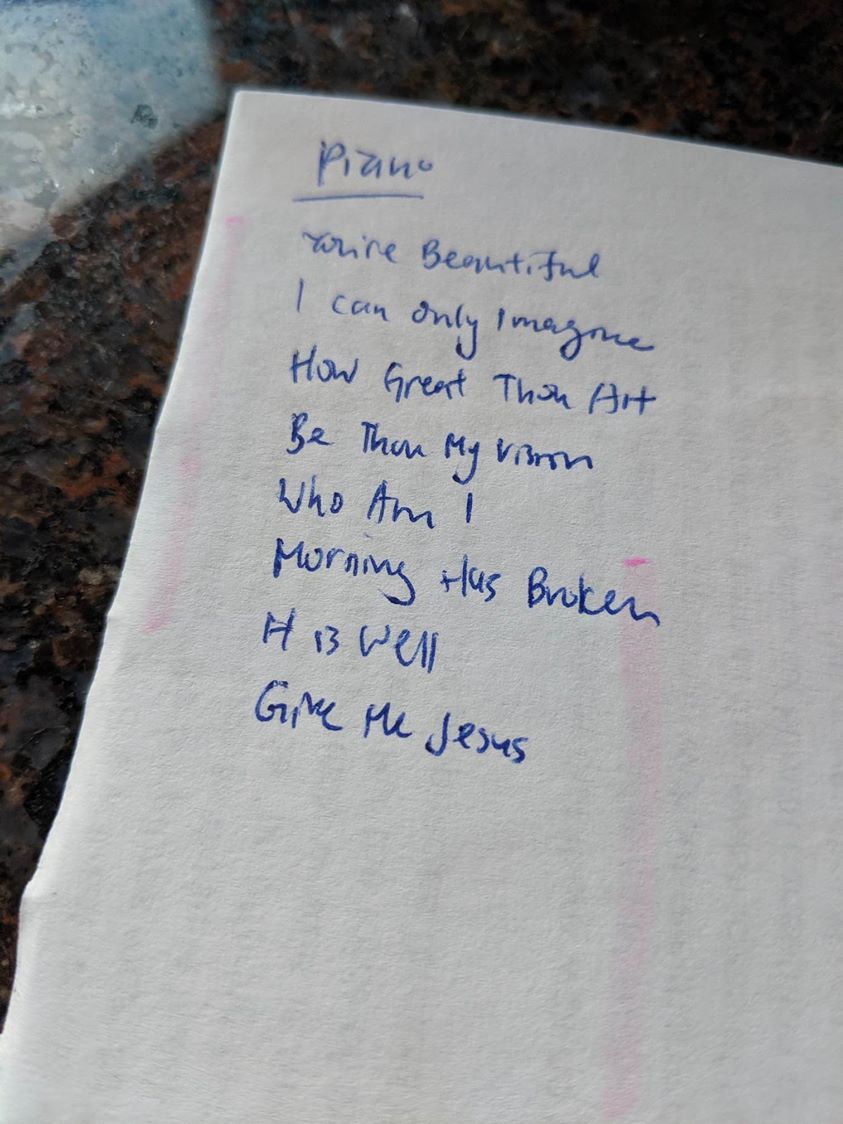 Piano
You're Beautiful
I can only Imagine
How Great Thou Art
Be Thou My Vision
Who Am I
Morning Has Broken
It is Well
Give Me Jesus